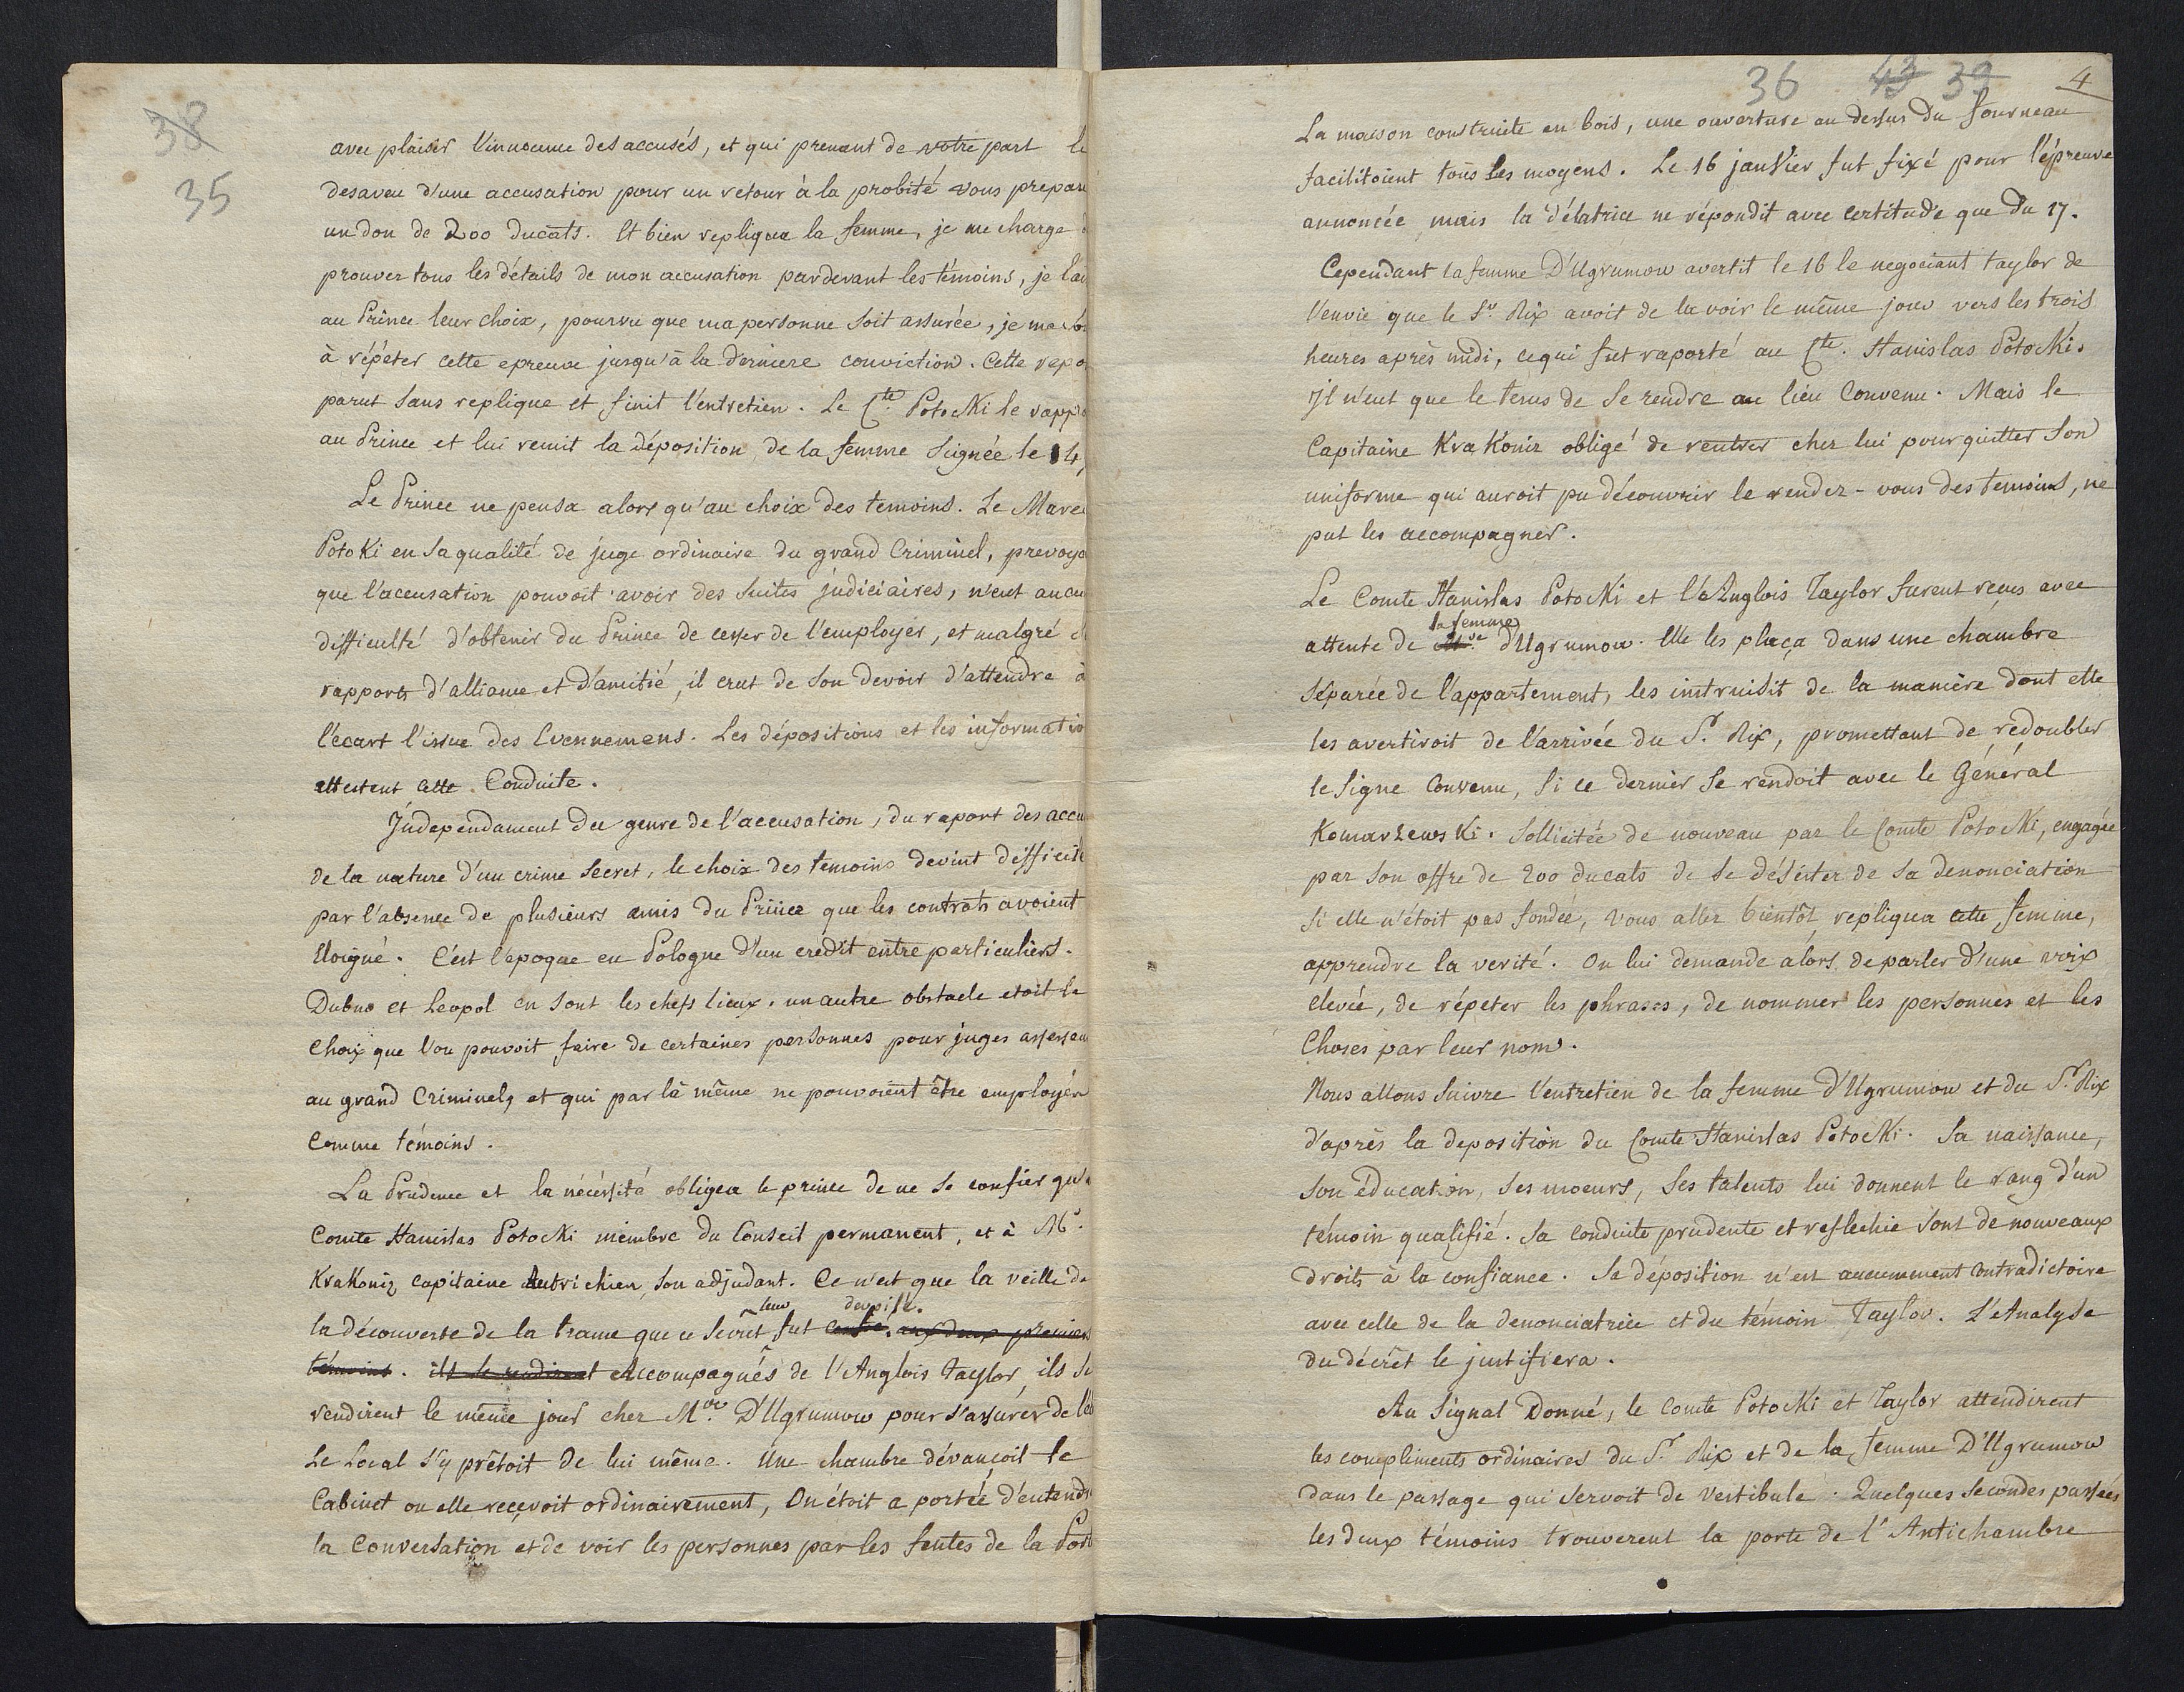 38
35
avec plaisir l'innocence des accusés, et qui prenant de votre part le
desaveu d'une accusation pour un retour à la probité vous prepare
un don de 200 ducats. Et bien repliqua la femme, je me charge
prouver tous les détails de mon accusation pardevant les témoins, je
au Prince leur choix, pourvu que ma personne soit assurée, je me
à répéter cette epreuve jusqu'à la derniere conviction. Cette
parut sans replique et finit l'entretien. Le Cte. Potocki le
au Prince et lui remit la déposition de la femme signée le 14,
Le Prince ne pensa alors qu'au choix des temoins. Le
Potoki en sa qualité de juge ordinaire du grand Criminel,
que l'accusation pouvoit avoir des suites judiciaires, n'eut
difficulté d'obtenir du Prince de cesser de l'employer, et malgré
rapports d'alliance et d'amitié, il crut de son devoir d'attendre à
l'écart l'issue des Evennemens. Les dépositions et les
attestent cette Conduite.
Independament du genre de l'accusation, du raport des
de la nature d'un crime secret, le choix des temoins devint difficile
par l'absence de plusieurs amis du Prince que les contrats avoient
éloigné. C'est l'époque en Pologne d'un credit entre particuliers.
Dubno et Leopol en sont les chefs lieux. un autre obstacle etoit le
Choix que l'on pouvoit faire de certaines personnes pour juges
au grand Criminel, et qui par là même ne pouvoient être employés
comme témoins.
La Prudence et la nécéssité obligea le prince de ne se confier
Comte Stanislas Potocki membre du Conseil permanent, et à Mr.
Krakoniz capitaine Autrichien, son adjudant. Ce n'est que la veille de
leur devoilé.
la découverte de la trame que ce secret fut aux deux premiers
témoins. ils se rendirent Accompagnés de l'Anglois Taylor, ils se
rendirent le même jour chez Me. D'Ugrumow pour s'assurer de
Le Local s'y prêtoit de lui même. Une chambre dévançoit le
Cabinet ou elle reçevoit ordinairement, On étoit a portée d'entendre
la Conversation et de voir les personnes par les fentes de la
36 43 39 4
La maison construite en bois, une ouverture au dessus du fourneau
facilitoient tous les moyens. Le 16 janvier fut fixé pour l'épreuve
annoncée, mais la délatrice ne répondit avec certitude que du 17.
Cependant la femme D'Ugrumow avertit le 16 le negociant taylor de
l'envie que le Sr. Rix avoit de la voir le même jour vers les trois
heures après midi, ce qui fut raporté au Cte. Stanislas Potocki.
Il n'eut que le tems de se rendre au lieu Convenu. Mais le
Capitaine Krakoniz obligé de rentrer chez lui pour quitter son
uniforme qui auroit pu découvrir le rendez-vous des temoins, ne
put les accompagner.
Le Comte Stanislas Potocki et l'Anglois Taylor furent reçus avec
la femme
attente de d'Ugrumow. Elle les plaça dans une chambre
séparée de l'appartement, les instruisit de la manière dont elle
les avertiroit de l'arrivée du Sr. Rix, promettant de redoubler
le signe Convenu, si ce dernier se rendoit avec le Général
Komarzewski. Sollicitée de nouveau par le Comte Potocki, engagée
par son offre de 200 ducats de se désister de sa denonciation
si elle n'étoit pas fondée, vous allez bientôt, repliqua cette femme,
apprendre la verité. On lui demande alors, de parler d'une voix
elevée, de répeter les phrases, de nommer les personnes et les
Choses par leur nom.
Nous allons suivre l'entretien de la femme D'Ugrumow et du Sr. Rix
d'après la deposition du Comte Stanislas Potocki. Sa naissance,
son éducation, ses moeurs, ses talents lui donnent le rang d'un
témoin qualifié. Sa conduite prudente et reflechie sont de nouveaux
droits à la confiance. Sa déposition n'est aucunement contradictoire
avec celle de la denonciatrice et du témoin Taylor. L'Analyse
du décrêt le justifiera.
Au Signal Donné, le Comte Potocki et Taylor attendirent
les compliments ordinaires du Sr. Rix et de la femme D'Ugrumow
dans le passage qui servoit de Vestibule. Quelques Secondes passées
les deux témoins trouverent la porte de l'Antichambre